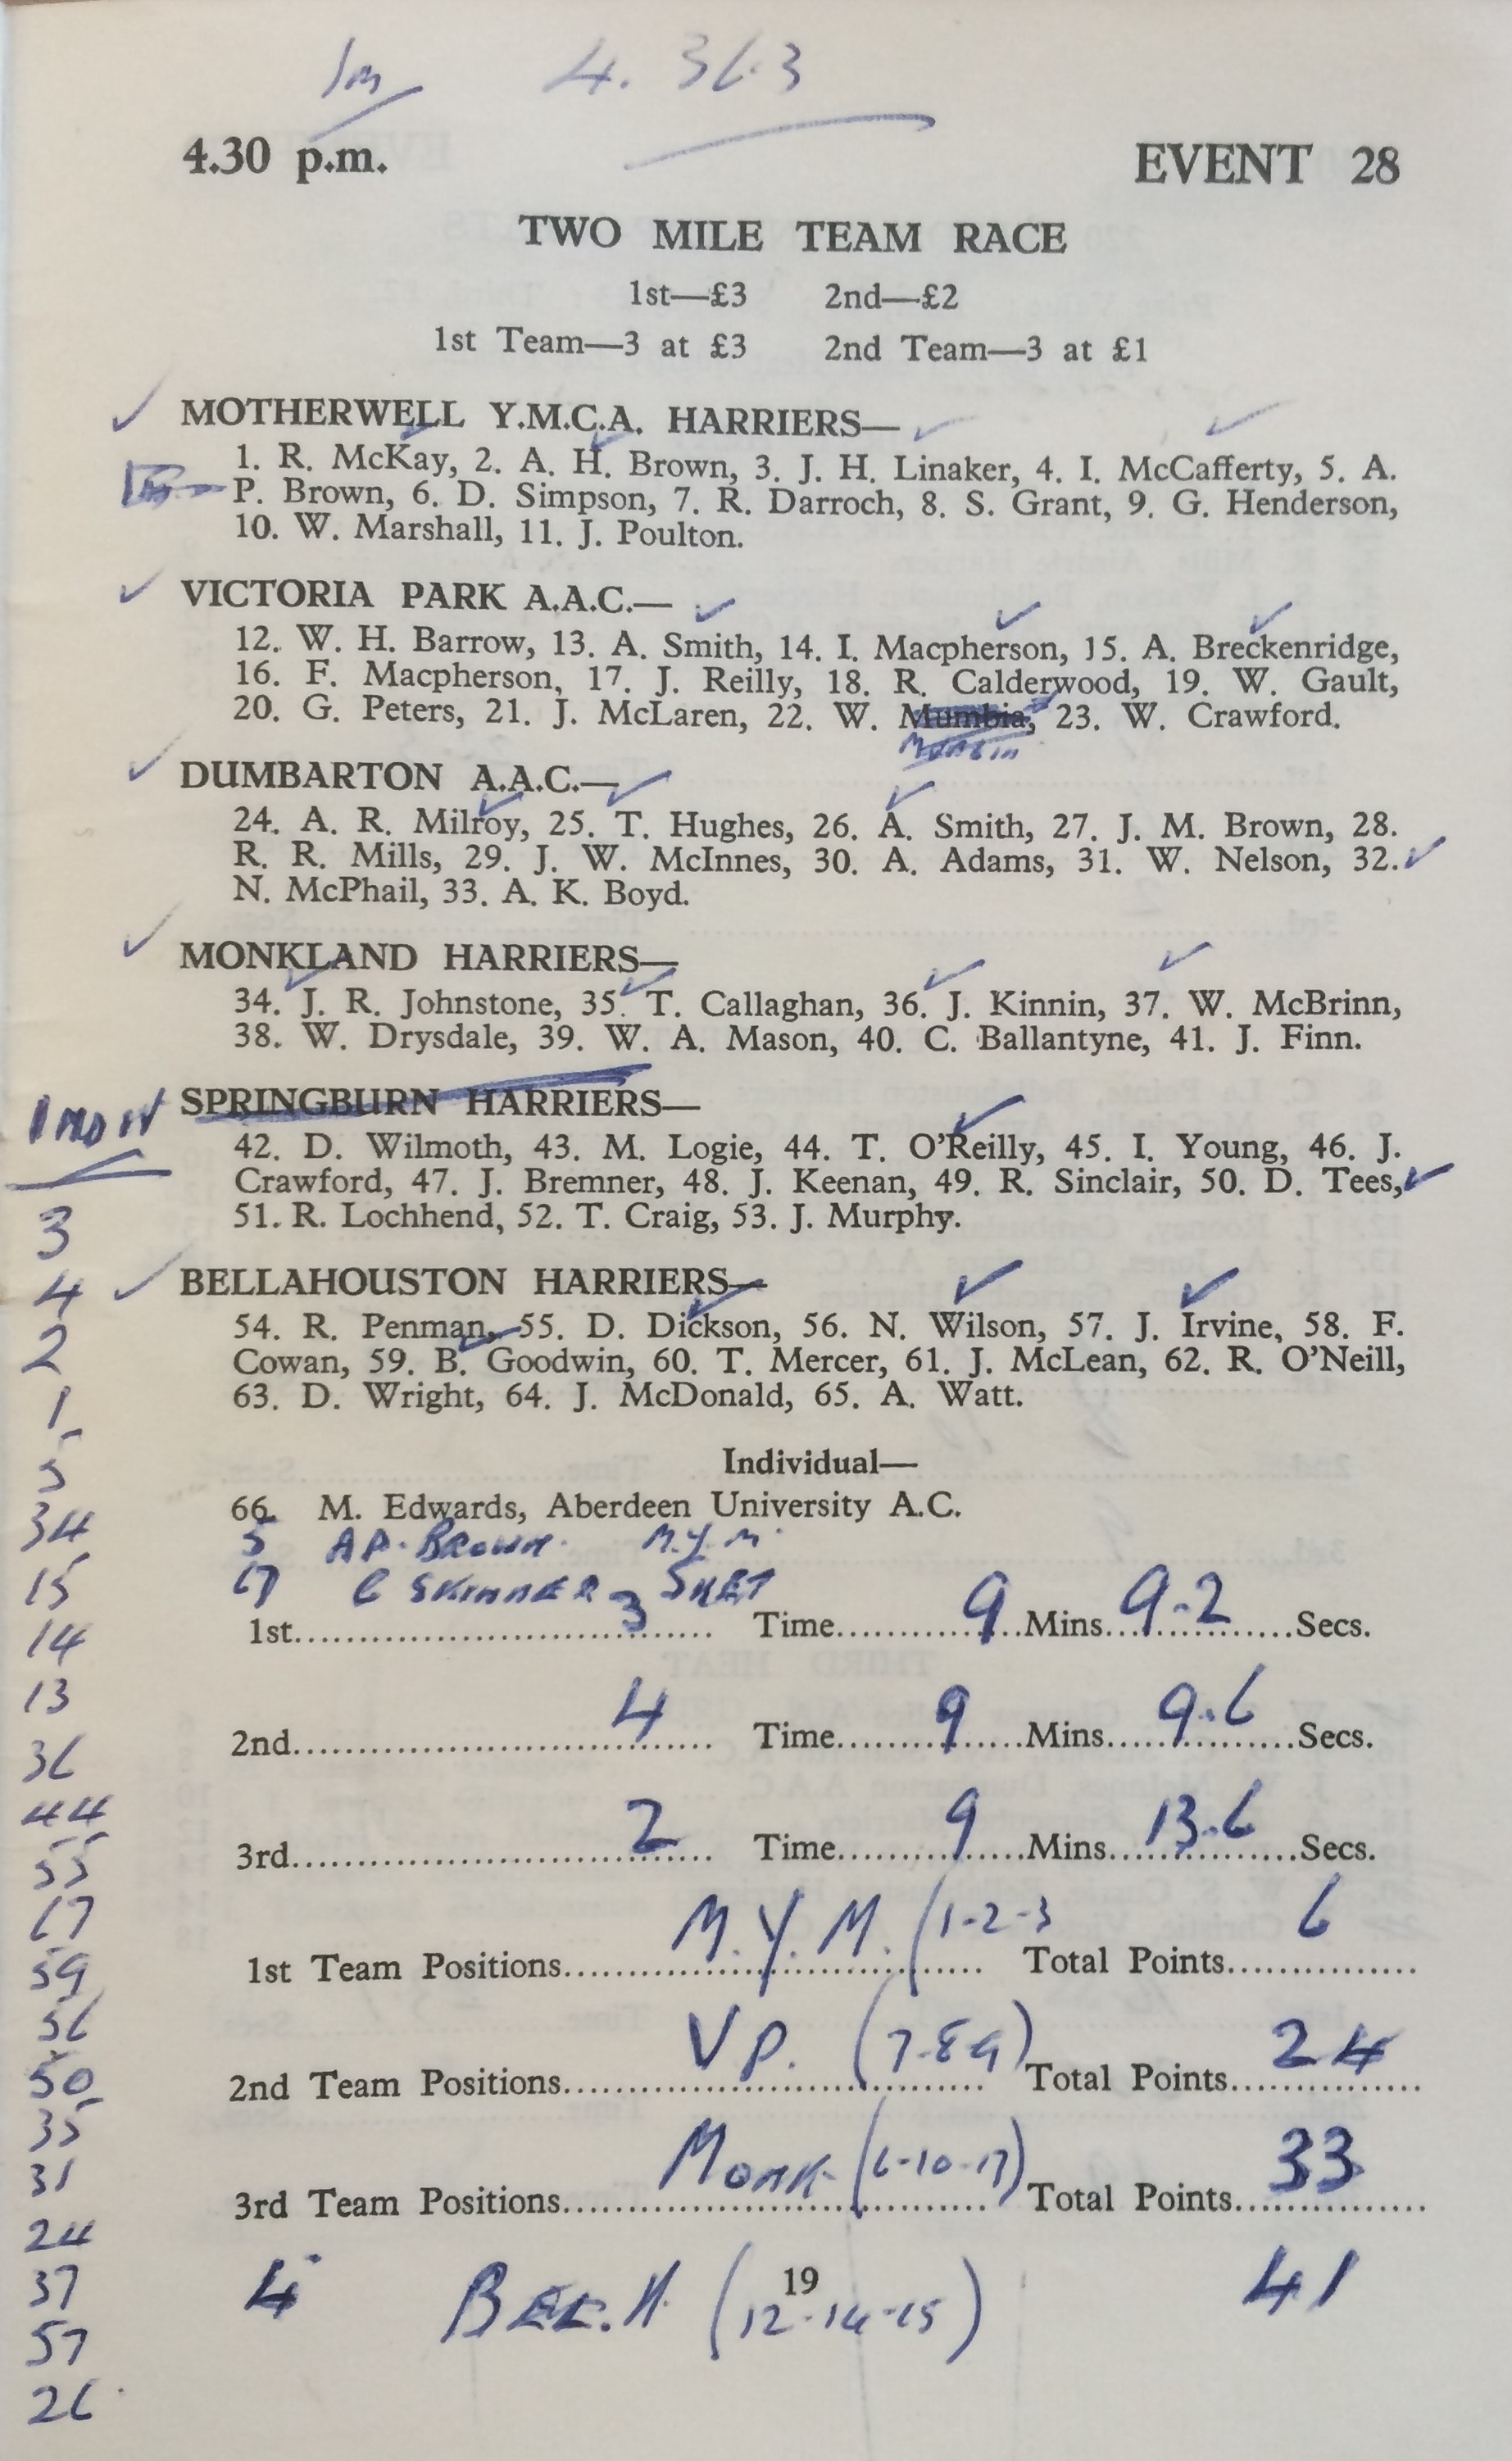 1m 4. 36.3
4.30 p.m. EVENT 28
TWO MILE TEAM RACE
1st—£3 2nd—£2
1st Team—3 at £3 2nd Team—3 at £1
MOTHERWELL Y.M.C.A. HARRIERS—
1. R. McKay, 2. A. H. Brown, 3. J. H. Linaker, 4. I. McCafferty, 5. A.
P. Brown, 6. D. Simpson, 7. R. Darroch, 8. S. Grant, 9. G. Henderson,
10. W. Marshall, 11. J. Poulton.
VICTORIA PARK A.A.C.—
12. W. H. Barrow, 13. A. Smith, 14. I. Macpherson, 15. A. Breckenridge,
16. F. Macpherson, 17. J. Reilly, 18. R. Calderwood, 19. W. Gault,
20. G. Peters, 21. J. McLaren, 22. W. Mumbia, 23. W. Crawford.
DUMBARTON A.A.C.—
24. A. R. Milroy, 25. T. Hughes, 26. A. Smith, 27. J. M. Brown, 28.
R. R. Mills, 29. J. W. McInnes, 30. A. Adams, 31. W. Nelson, 32.
N. McPhail, 33. A. K. Boyd.
MONKLAND HARRIERS—
34. J. R. Johnstone, 35. T. Callaghan, 36. J. Kinnin, 37. W. McBrinn,
38. W. Drysdale, 39. W. A. Mason, 40. C. Ballantyne, 41. J. Finn.
SPRINGBURN HARRIERS—
42. D. Wilmoth, 43. M. Logie, 44. T. O'Reilly, 45. I. Young, 46. J.
Crawford, 47. J. Bremner, 48. J. Keenan, 49. R. Sinclair, 50. D. Tees,
51. R. Lochhend, 52. T. Craig, 53. J. Murphy.
BELLAHOUSTON HARRIERS—
54. R. Penman, 55. D. Dickson, 56. N. Wilson, 57. J. Irvine, 58. F.
Cowan, 59. B. Goodwin, 60. T. Mercer, 61. J. McLean, 62. R. O'Neill,
63. D. Wright, 64. J. McDonald, 65. A. Watt.
Individual—
66. M. Edwards, Aberdeen University A.C.
5 A P. BROWN. M.Y.M.
67 C SKINNER SHET
1st 3 Time 9 Mins 9.2 Secs.
2nd 4 Time 9 Mins 9.6 Secs.
3rd 2 Time 9 Mins 13.6 Secs.
1st Team Positions M.Y.M. (1-2-3 Total Points 6
2nd Team Positions V P. (7-8 9) Total Points 24
3rd Team Positions MONK (6-10-17) Total Points 33
4 BELL.H. (12-14-15) 41
19
3
4
2
1
5
34
15
14
13
36
44
55
67
59
56
50
35
31
24
37
57
26